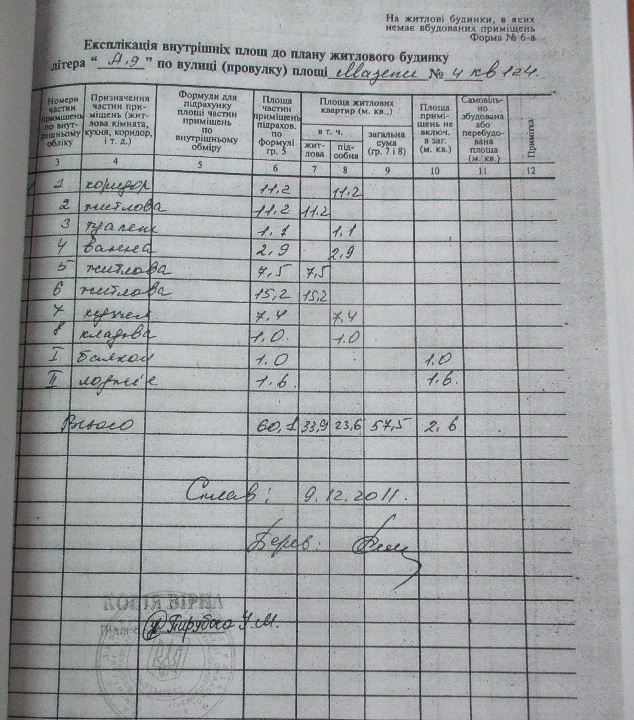 На житлові будинки, в яких
немає вбудованих приміщень
Форма № 6-а
Експлікація внутрішніх площ до плану житлового будинку
літера “ А,9 ” по вулиці (провулку) площі Мазепи № 4 кв 124.
Номери частин приміщень по внутрішньому обліку
Призначення частин приміщень (житлова кімната, кухня, коридор, і т. д.)
Формули для підрахунку площі частин приміщень по внутрішньому обміру
Площа частин приміщень підрахов. по формулі гр. 5
Площа житлових квартир (м. кв.,)
в т. ч.
житлова
підсобна
загальна сума (гр. 7 і 8)
Площа приміщень не включ. в заг. (м. кв.)
Самовільно збудована або перебудована площа (м. кв.)
Примітка
3 4 5 6 7 8 9 10 11 12
1 коридор 11,2 11,2
2 житлова 11,2 11,2
3 туалет 1.1 1.1
4 ванна 2,9 2,9
5 житлова 7,5 7,5
6 житлова 15,2 15,2
7 кухня 7,4 7,4
8 кладова 1.0 1.0
I балкон 1.0 1.0
II лоджія 1.6 1.6.
Всього 60,1 33,9 23,6 57,5 2,6
Склав: 9.12.2011.
Перев:
КОПІЯ ВІРНА